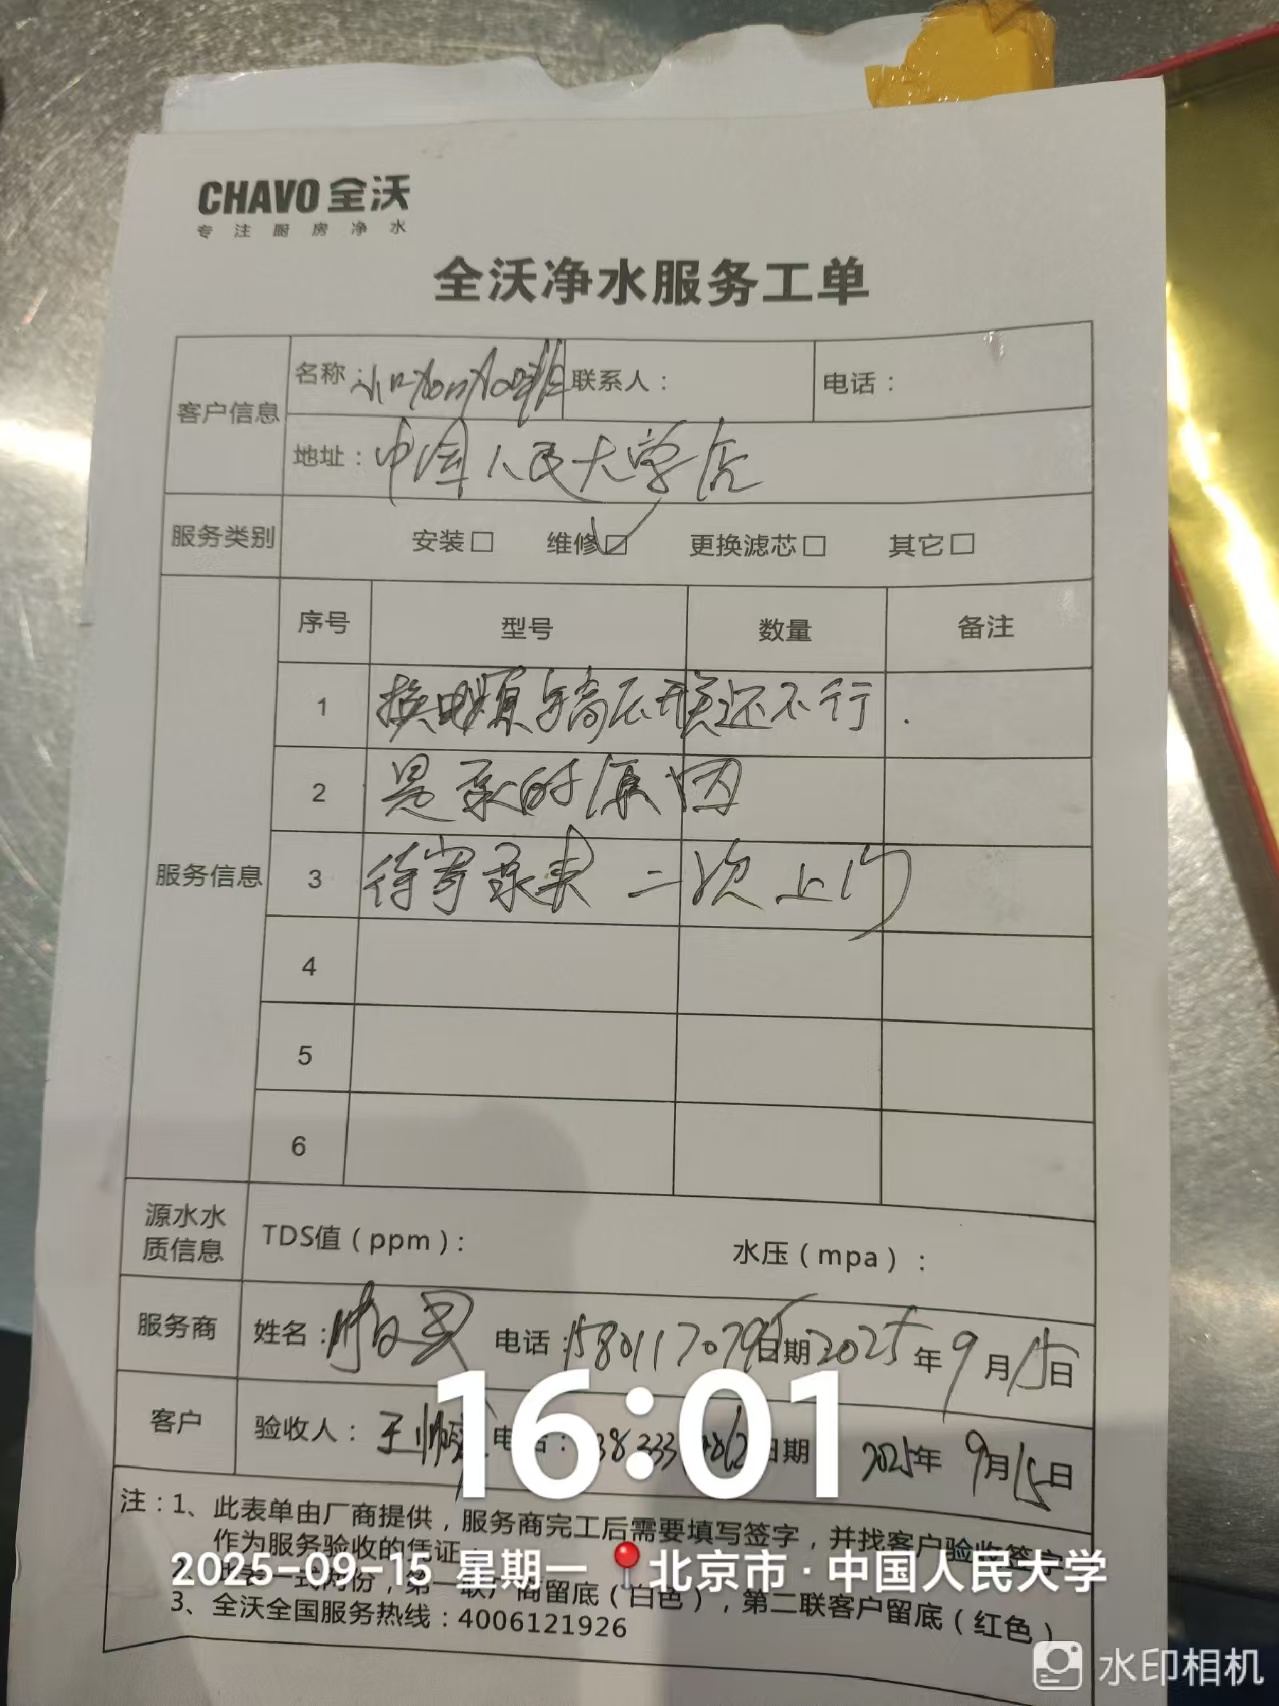 CHAVO 全沃
专注厨房净水
全沃净水服务工单
客户信息 名称： 联系人： 电话：
地址：中国人民大学店
服务类别 安装□ 维修☑ 更换滤芯□ 其它□
服务信息 序号 型号 数量 备注
1 换电源与高压 还不行.
2 是泵的原因
3 待寄泵来 二次上门
4
5
6
源水水质信息 TDS值（ppm）： 水压（mpa）：
服务商 姓名： 电话：15801170795 日期 2025年9月15日
客户 验收人：王 电话： 日期 2025年9月15日
16:01
注：1、此表单由厂商提供，服务商完工后需要填写签字，并找客户验收签字
作为服务验收的凭证
一式两份，第一联厂商留底（白色），第二联客户留底（红色）
3、全沃全国服务热线：4006121926
2025-09-15 星期一 北京市·中国人民大学
水印相机